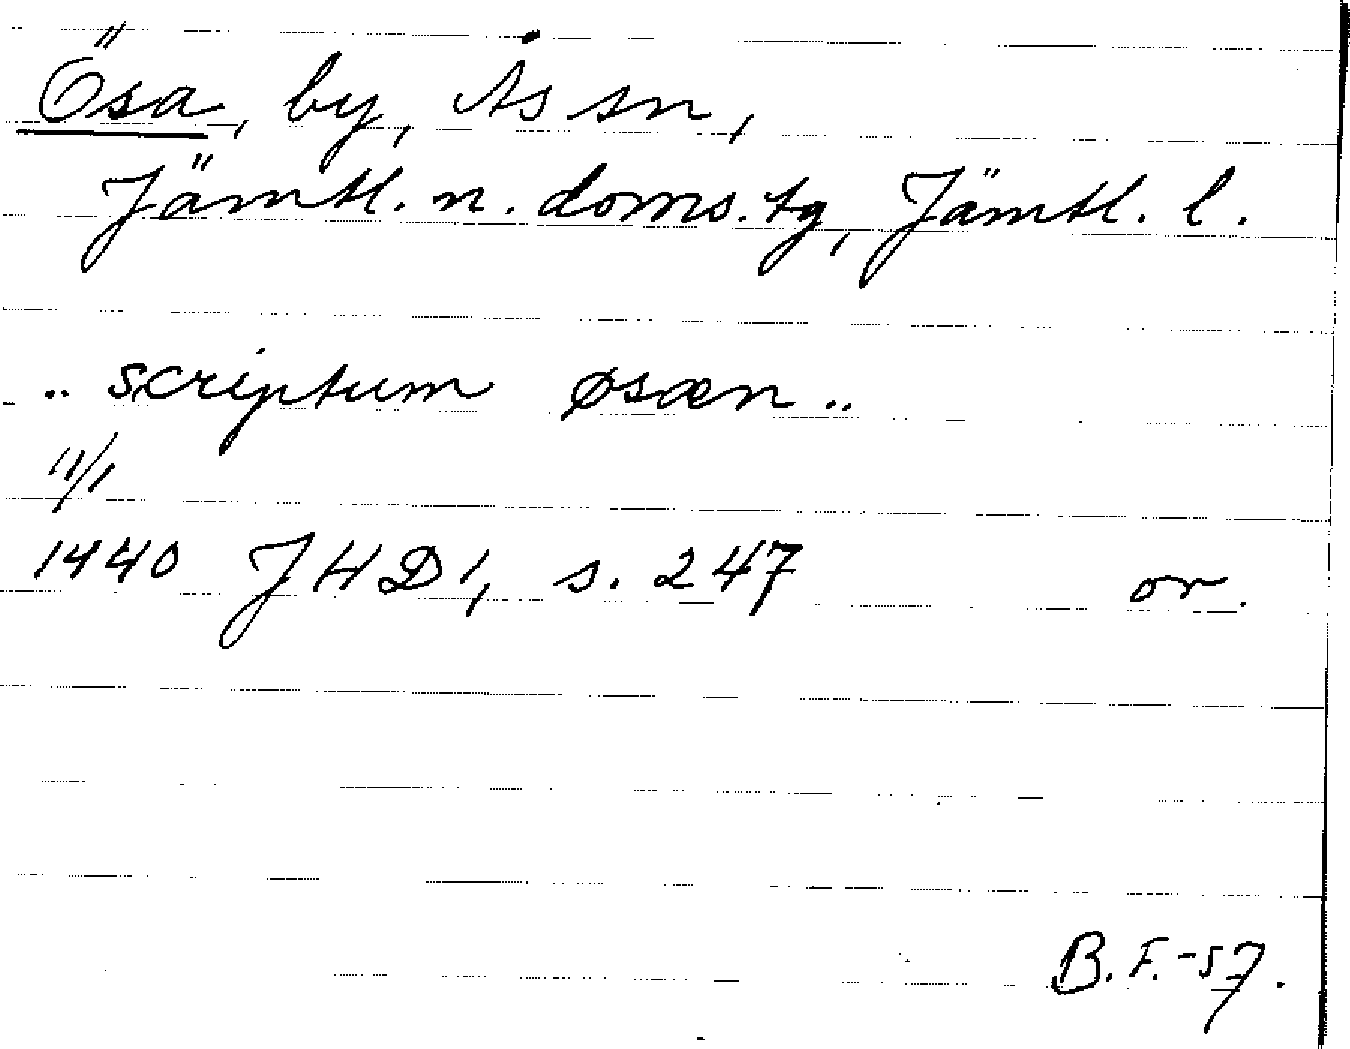 Ösa, by, Ås sn,
Jämtl. n. doms. tg, Jämtl. l.
.. scriptum øsæn ..
11/1
1440 JHD 1, s. 247 or.
B. F. -57.